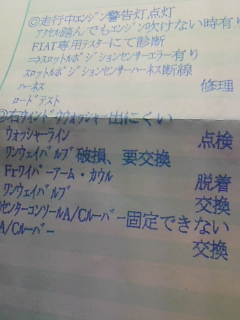 ◎走行中エンジン警告灯点灯
アクセル踏んでもエンジン吹けない時有り
FIAT専用テスターにて診断
⇒スロットルポジションセンサーエラー有り
スロットルポジションセンサーハーネス断線
ハーネス 修理
ロードテスト
◎右ウインドウウォッシャー出にくい
ウォッシャーライン 点検
ワンウェイバルブ破損、要交換
Frワイパーアーム・カウル 脱着
ワンウェイバルブ 交換
センターコンソールA/Cルーバー固定できない
A/Cルーバー 交換